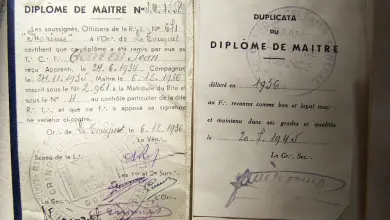 DIPLÔME DE MAITRE
Les soussignés, Officiers de la R∴ L∴ N° 671
à l'Or∴ de Le Touquet
certifient que ce diplôme a été remis par eux au
T∴ C∴ F∴ Jean
reçu Apprenti, le 24.6.1934 Compagnon
le 24.11.1935 Maître, le 6.12.1936
inscrit sous le N° 2.961 à la Matricule du Rite et
sous le N° 11 au contrôle particulier de la dite
R∴ L∴ et que ce F∴ a apposé sa signature
ne varietur ci-contre.
Or∴ de Le Touquet le 6.12.1936
Le Vén∴
Sceau de la
Les 1er et 2e Surv∴
DUPLICATA
DU
DIPLÔME DE MAITRE
délivré en 1936
au F∴ reconnu comme bon et loyal maç∴
et maintenu dans ses grades et qualités
le 20.7.1945
Le Gr∴ Sec∴